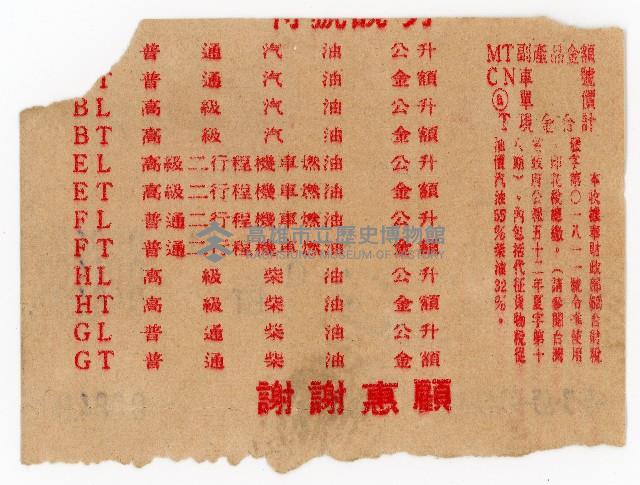 符號說明
普通汽油 公升
T 普通汽油 金額
BL 高級汽油 公升
BT 高級汽油 金額
EL 高級二行程機車燃油 公升
ET 高級二行程機車燃油 金額
FL 普通二行程機車燃油 公升
FT 普通二行程機車燃油 金額
HL 高級柴油 公升
HT 高級柴油 金額
GL 普通柴油 公升
GT 普通柴油 金額
MT 副產品金額
CN 車號
@ 單價
T 現金合計
本收據奉財政部55台財稅
發字第〇一八一一號令准使用
印花稅總繳。(請參閱台灣
省政府公報五十二年夏字第十
八期)。內包括代征貨物稅從
油價汽油55%柴油32%。
謝謝惠顧
高雄市立歷史博物館
KAOHSIUNG MUSEUM OF HISTORY